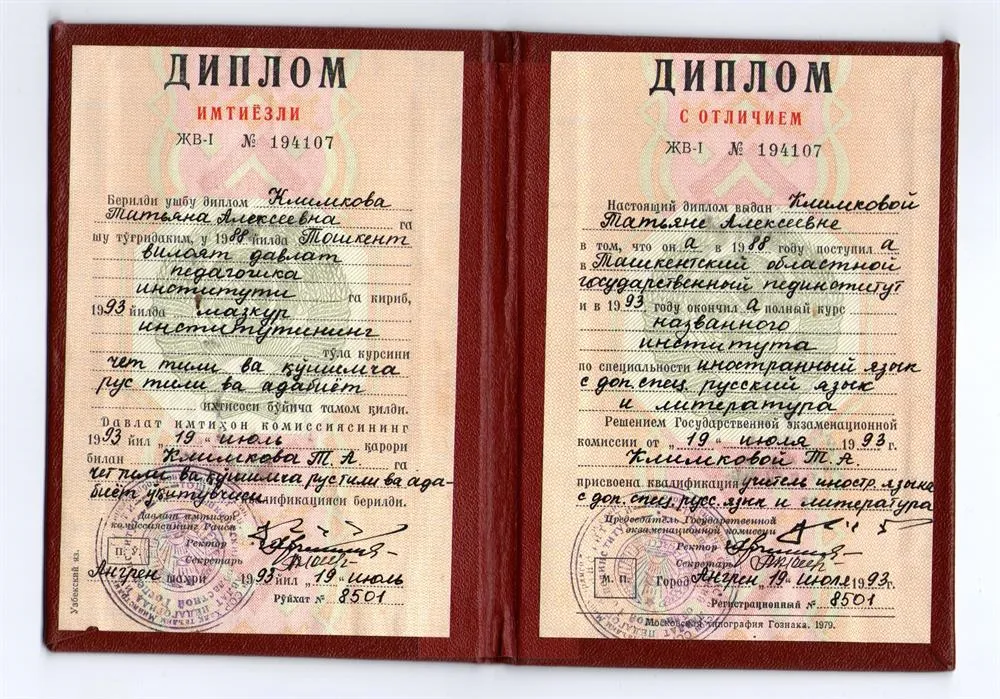 ДИПЛОМ
ИМТИЁЗЛИ
ЖВ-I № 194107
Берилди ушбу диплом Климкова
Татьяна Алексеевна га
шу тўғридаким, у 1988 йилда Тошкент
вилоят давлат
педагогика
институти га кириб,
1993 йилда мазкур
институтининг
тўла курсини
чет тили ва қўшимча
рус тили ва адабиёт
ихтисоси бўйича тамом қилди.
Давлат имтихон комиссиясининг
1993 йил „19“ июль қарори
билан Климкова Т. А. га
чет тили ва қўшимча рус тили ва ада-
биёт ўқитувчиси квалификацияси берилди.
Давлат имтиҳон
комиссиясининг Раиси
Ректор
Секретарь
П. Ў.
Ангрен шаҳри 1993 йил „19“ июль
Рўйхат № 8501
Узбекский яз.
ДИПЛОМ
С ОТЛИЧИЕМ
ЖВ-I № 194107
Настоящий диплом выдан Климковой
Татьяне Алексеевне
в том, что он а в 1988 году поступил а
в Ташкентский областной
государственный пединститут
и в 1993 году окончил а полный курс
названного
института
по специальности иностранный язык
с доп. спец. русский язык
и литература
Решением Государственной экзаменационной
комиссии от „19“ июля 1993 г.
Климковой Т. А.
присвоена квалификация учитель иностр. языка
с доп. спец. русс. язык и литература
Председатель Государственной
экзаменационной комиссии
Ректор
Секретарь
М. П.
Город Ангрен, 19 июля 1993 г.
Регистрационный № 8501
Московская типография Гознака. 1979.